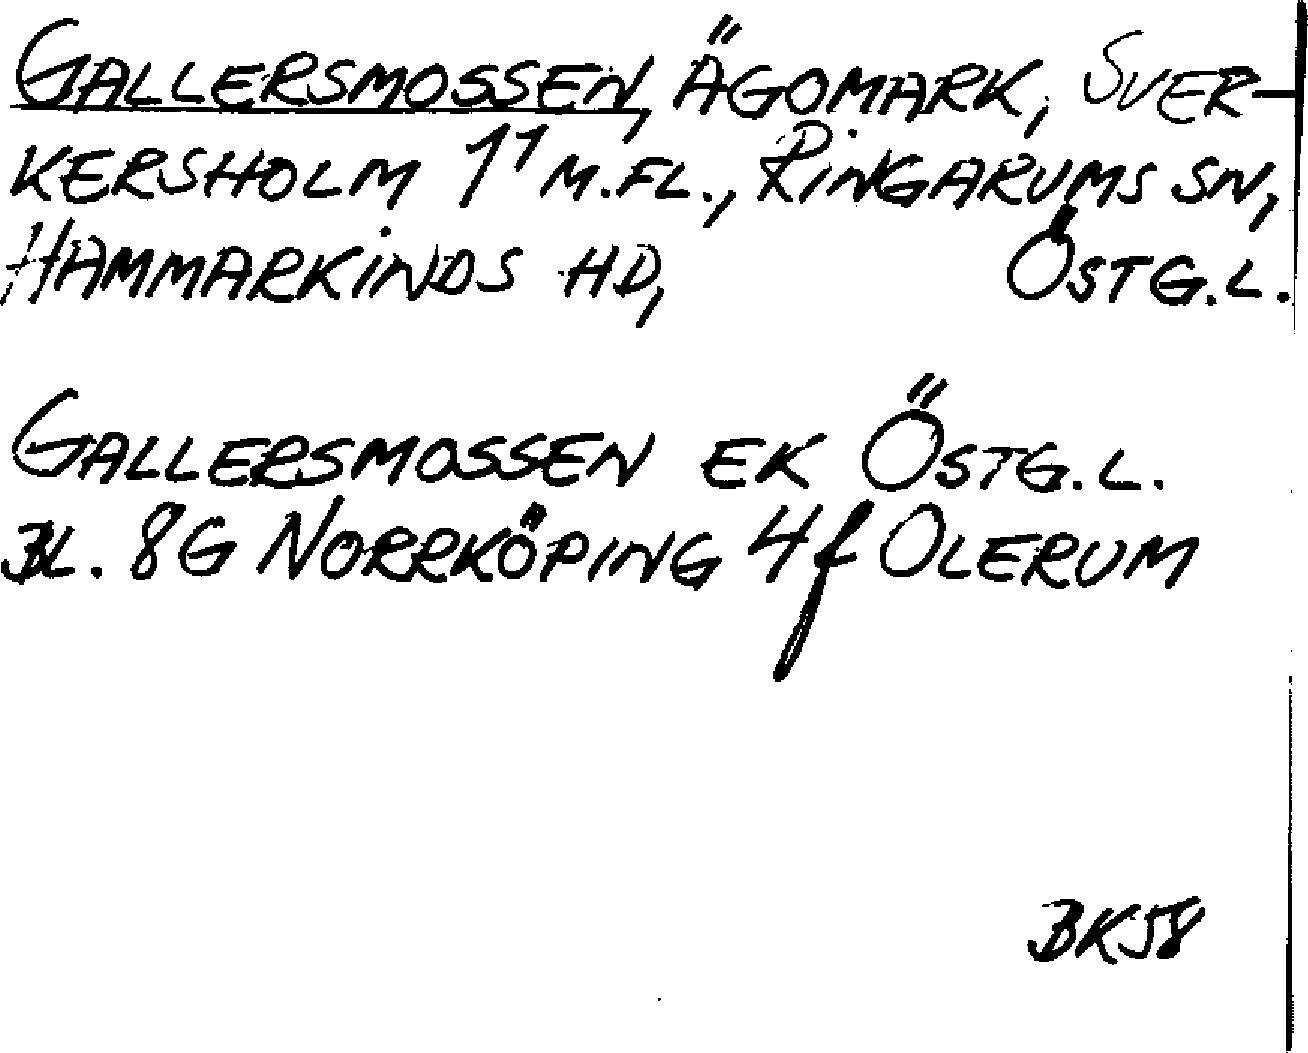 GALLERSMOSSEN, ÄGOMARK, SVER-
KERSHOLM 1¹ M.FL., RINGARUMS SN,
HAMMARKINDS HD, ÖSTG.L.
GALLERSMOSSEN EK ÖSTG.L.
BL. 8G NORRKÖPING 4f OLERUM
BK58